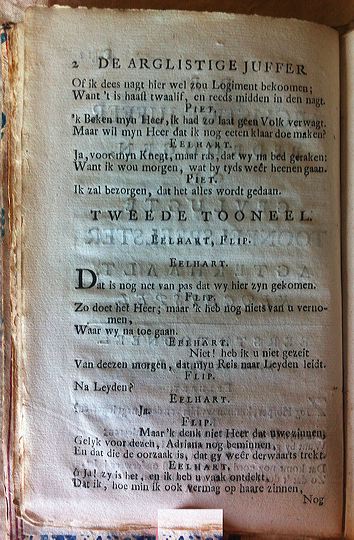 2 DE ARGLISTIGE JUFFER
Of ik dees nagt hier wel zou Logiment bekoomen;
Want 't is haast twaalif, en reeds midden in den nagt.
PIET.
'k Beken myn Heer, ik had zo laat geen Volk verwagt.
Maar wil myn Heer dat ik nog eeten klaar doe maken?
EELHART.
Ja, voor myn Knegt, maar ras, dat wy na bed geraken:
Want ik wou morgen, wat by tyds weêr heenen gaan.
PIET.
Ik zal bezorgen, dat het alles wordt gedaan.
TWEEDE TOONEEL.
EELHART, FLIP.
EELHART.
Dat is nog net van pas dat wy hier zyn gekomen.
FLIP.
Zo doet het Heer; maar 'k heb nog niets van u verno-
men,
Waar wy na toe gaan.
EELHART.
Niet! heb ik u niet gezeit
Van deezen morgen, dat myn Reis naar Leyden leidt.
FLIP.
Na Leyden?
EELHART.
Ja.
FLIP.
Maar 'k denk niet Heer dat uwe zinnen,
Gelyk voor dezen, Adriana nog beminnen,
En dat die de oorzaak is, dat gy weêr derwaarts trekt.
EELHART,
ô Ja! zy is het, en ik heb u vaak ontdekt,
Dat ik, hoe min ik ook vermag op haare zinnen,
Nog